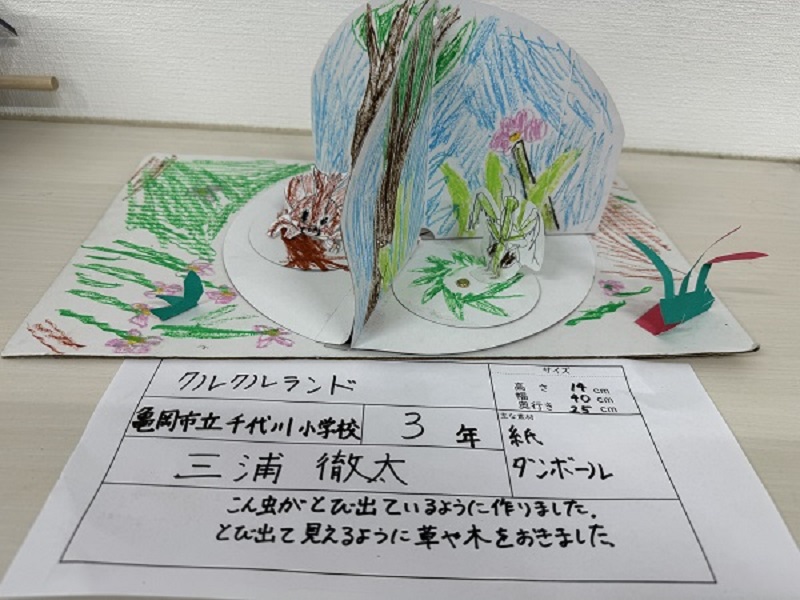 クルクルランド
サイズ
高さ 14 cm
幅 40 cm
奥行き 25 cm
亀岡市立千代川小学校 3 年
主な素材
紙
ダンボール
三浦 徹太
こん虫がとび出ているように作りました。
とび出て見えるように草や木をおきました。